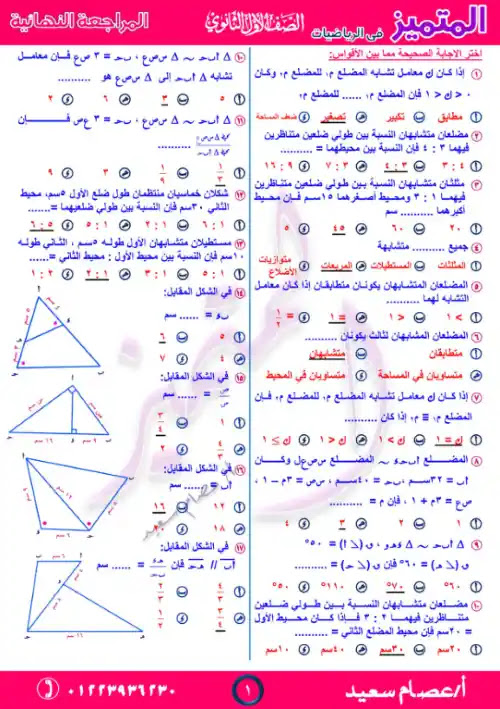 المتميز
فى الرياضيات
الصف الأول الثانوي
المراجعة النهائية
اختر الاجابة الصحيحة مما بين الأقواس:
١ إذا كان ك معامل تشابه المضلع م١ للمضلع م٢ وكان
٠ < ك < ١ فإن المضلع م١ ...... للمضلع م٢
أ مطابق ب تكبير ج تصغير د ضعف المساحة
٢ مضلعان متشابهان النسبة بين طولي ضلعين متناظرين
فيهما ٣ : ٤ فإن النسبة بين محيطهما = ........
أ ٤ : ٣ ب ٣ : ٤ ج ٣ : ٧ د ٩ : ١٦
٣ مثلثان متشابهان النسبة بين طولي ضلعين متناظرين
فيهما ١ : ٣ ومحيط أصغرهما ١٥سم فإن محيط
أكبرهما .......... سم
أ ٢٠ ب ٦٠ ج ٤٥ د ٥
٤ جميع .......... متشابهة
أ المثلثات ب المستطيلات ج المربعات د متوازيات الأضلاع
٥ المضلعان المتشابهان يكونان متطابقان إذا كان معامل
التشابه لهما ..........
أ > ١ ب < ١ ج = ١ د = ١/٢
٦ المضلعان المشابهان لثالث يكونان ..........
أ متطابقان ب متشابهان
ج متساويان في المساحة د متساويان في المحيط
٧ إذا كان ك معامل تشابه المضلع م١ للمضلع م٢ فإن
المضلع م١ ≡ م٢ إذا كان ..........
٨ المضلع أبجد ~ المضلع سصعل وكان
أب = ٣٢سم ، بجـ = ٤٠سم ، سص = ٣م − ١ ،
صع = ٣م + ١ ، فإن م = ..........
أ ١ ب ٢ ج ٣ د ٤
٩ Δ أبجـ ~ Δ دهـو ، ق(أ) = ٥٠°
ق(هـ) = ٦٠° فإن ق(جـ) = ..........
أ ٦٠° ب ٧٠° ج ١١٠° د ٥٠°
١٠ مضلعان متشابهان النسبة بين طولي ضلعين
متناظرين فيهما ٢ : ٣ فإذا كان محيط الأول
= ٢٠سم فإن محيط المضلع الثاني = ..........
أ ٢٠سم ب ٣٠سم ج ٤٠سم د ١٠سم
١٠ Δ أبجـ ~ Δ سصع ، بجـ = ٣ صع فإن معامل
تشابه Δ أبجـ إلى Δ سصع هو ..........
أ ٥ ب ٣ ج ٦ د ٢
١١ Δ أبجـ ~ Δ سصع ، بجـ = ٣ صع فإن
..........
أ ١/٣ ب ١/٩ ج ٣ د ٩
١٢ شكلان خماسيان منتظمان طول ضلع الأول ٥سم، محيط
الثاني ٣٠سم فإن النسبة بين طولي ضلعيهما =.......
أ ٥ : ١ ب ١ : ٣ ج ١ : ٦ د ٥ : ٦
١٣ مستطيلان متشابهان الأول طوله ٥سم ، الثاني طوله
١٠سم فإن النسبة بين محيط الأول : محيط الثاني =......
أ ٥ : ١ ب ١ : ٣ ج ١ : ٢ د ٢ : ١
١٤ في الشكل المقابل:
بد = ...... سم
أ ٥ ب ٦
ج ٤ د ٧
١٥ في الشكل المقابل:
س/ص = ...... سم
١٦ في الشكل المقابل:
أب = ...... سم
أ ١٢ ب ١٦
ج ١٨ د ٢٠
١٧ في الشكل المقابل:
أب // هـجـ فإن = ...... سم
أ/عصام سعيد
١
٠١٢٢٣٩٣٦٢٣٠